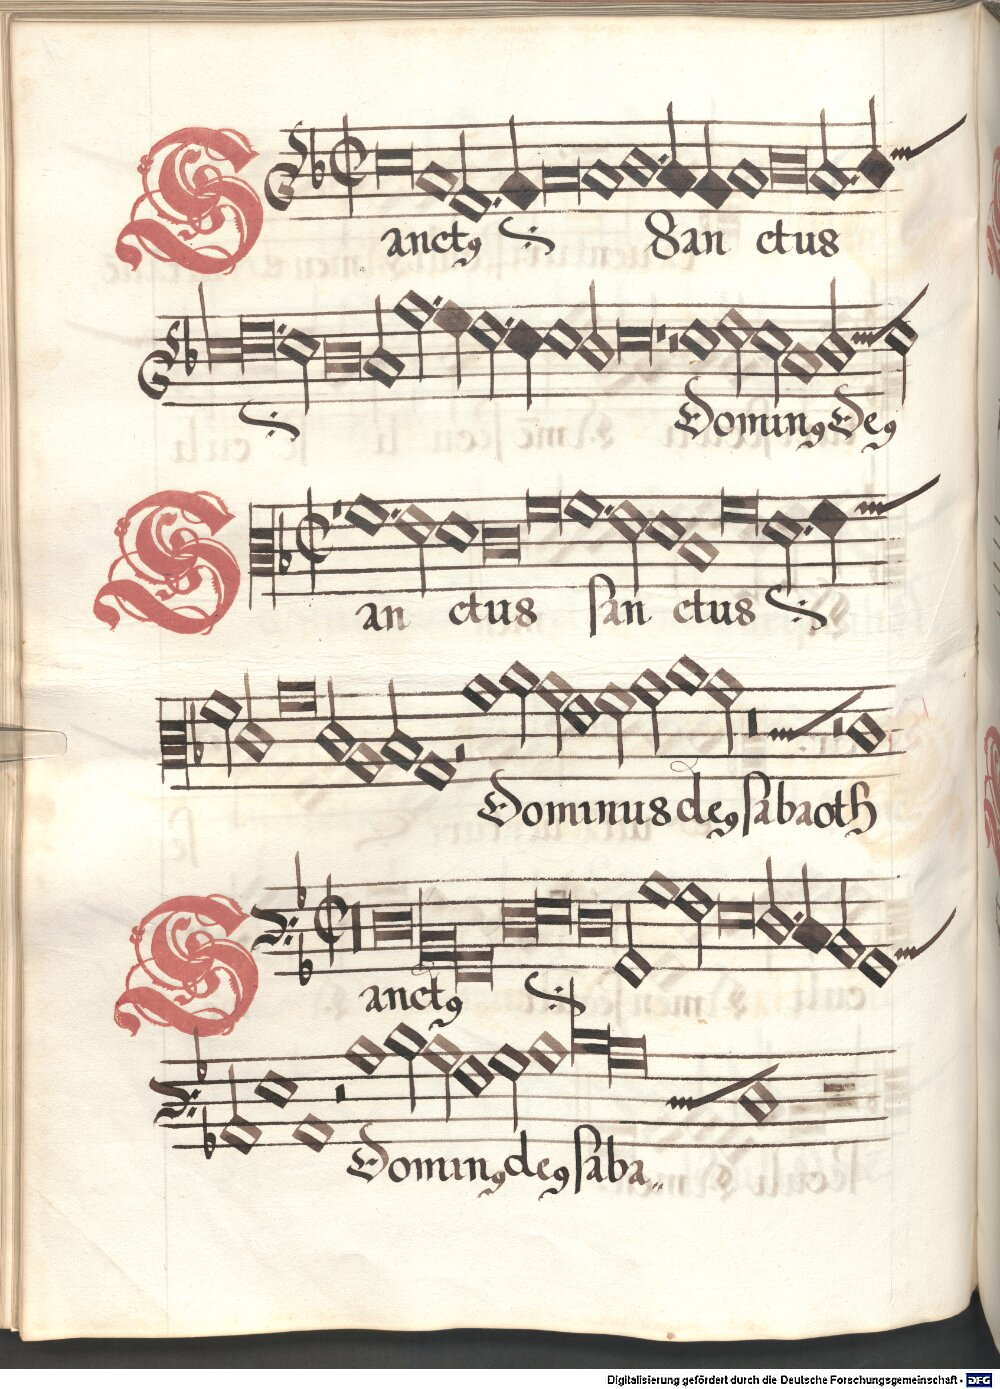 Sanctꝯ San ctus
Dominꝯ Deꝯ
San ctus san ctus
Dominus deꝯ sabaoth
Sanctꝯ
Dominꝯ deꝯ saba„
Digitalisierung gefördert durch die Deutsche Forschungsgemeinschaft - DFG